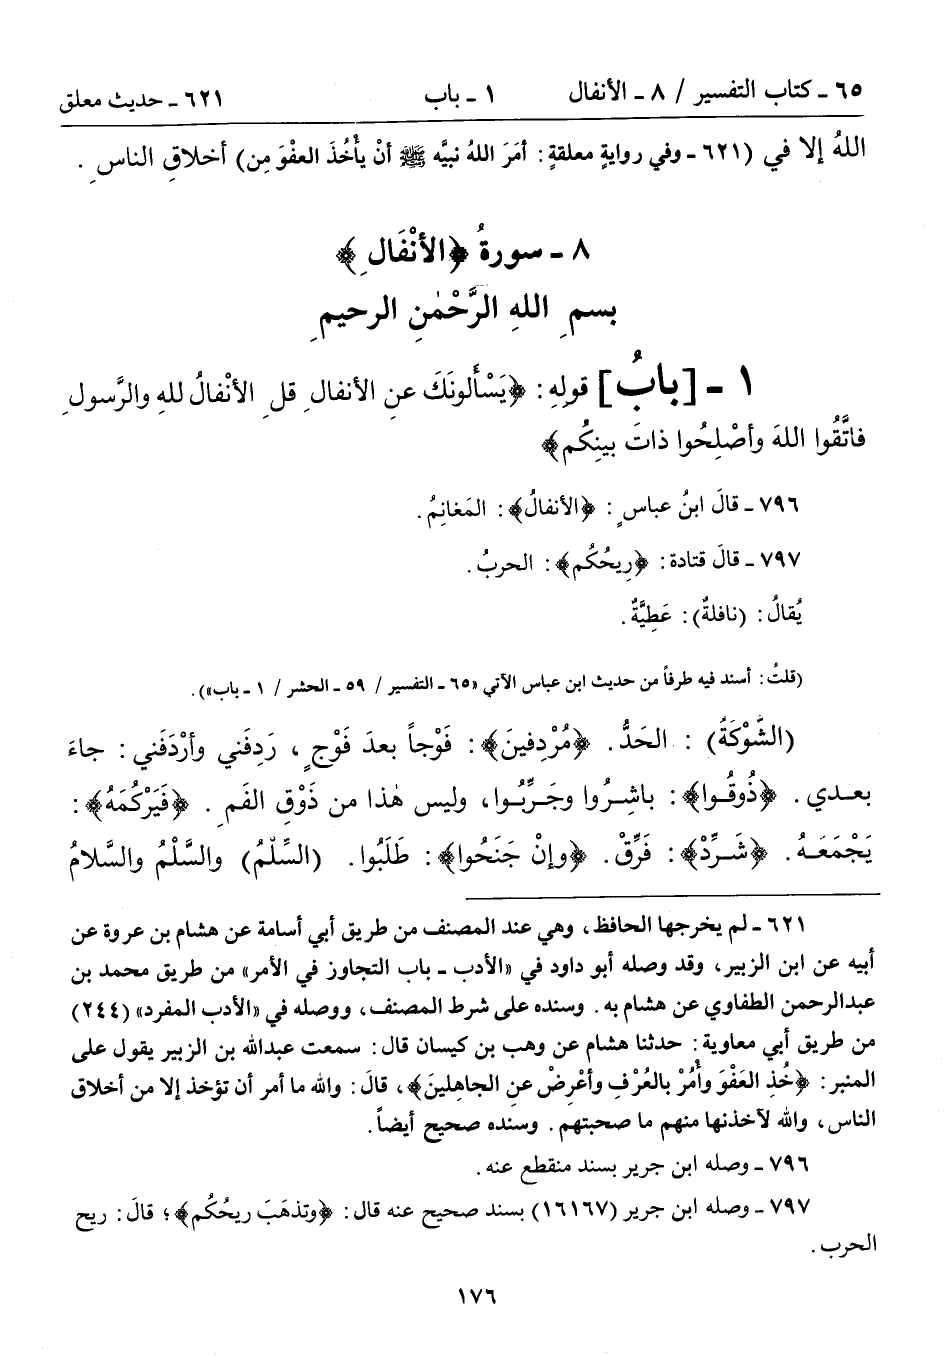 ٦٥ ـ كتاب التفسير / ٨ ـ الأنفال ١ ـ باب ٦٢١ ـ حديث معلق
اللهُ إلا في (٦٢١ ـ وفي روايةٍ معلقةٍ: أمَرَ اللهُ نبيَّه ﷺ أنْ يأخُذَ العفْوَ مِن) أخلاقِ الناسِ.
٨ ـ سورةُ ﴿الأنْفَالِ﴾
بسمِ اللهِ الرَّحْمٰنِ الرحيمِ
١ ـ [بابُ] قولِهِ: ﴿يَسْأَلونَكَ عنِ الأنفالِ قلِ الأنْفالُ للهِ والرَّسولِ
فاتَّقُوا اللهَ وأصْلِحُوا ذاتَ بينِكُم﴾
٧٩٦ ـ قالَ ابنُ عباسٍ: ﴿الأنفالُ﴾: المَغانِمُ.
٧٩٧ ـ قالَ قتادة: ﴿رِيحُكُم﴾: الحربُ.
يُقالُ: (نافلةٌ): عَطِيَّةٌ.
(قلتُ: أسند فيه طرفاً من حديث ابن عباس الآتي «٦٥ ـ التفسير / ٥٩ ـ الحشر / ١ ـ باب»).
(الشَّوْكَةُ) : الحَدُّ. ﴿مُرْدِفينَ﴾: فَوْجاً بعدَ فَوْجٍ، رَدِفَني وأرْدَفَني: جاءَ
بعدي. ﴿ذُوقُوا﴾: باشِرُوا وجَرِّبُوا، وليس هٰذا من ذَوْقِ الفَمِ. ﴿فَيَرْكُمَهُ﴾:
يَجْمَعَهُ. ﴿شَرِّدْ﴾: فَرِّقْ. ﴿وإنْ جَنَحُوا﴾: طَلَبُوا. (السِّلْمُ) والسَّلْمُ والسَّلامُ
٦٢١ ـ لم يخرجها الحافظ، وهي عند المصنف من طريق أبي أسامة عن هشام بن عروة عن
أبيه عن ابن الزبير، وقد وصله أبو داود في «الأدب ـ باب التجاوز في الأمر» من طريق محمد بن
عبدالرحمن الطفاوي عن هشام به. وسنده على شرط المصنف، ووصله في «الأدب المفرد» (٢٤٤)
من طريق أبي معاوية: حدثنا هشام عن وهب بن كيسان قال: سمعت عبدالله بن الزبير يقول على
المنبر: ﴿خُذِ العَفْوَ وأْمُرْ بالعُرْفِ وأعْرِضْ عنِ الجاهلينَ﴾، قالَ: والله ما أمر أن تؤخذ إلا من أخلاق
الناس، والله لآخذنها منهم ما صحبتهم. وسنده صحيح أيضاً.
٧٩٦ ـ وصله ابن جرير بسند منقطع عنه.
٧٩٧ ـ وصله ابن جرير (١٦١٦٧) بسند صحيح عنه قال: ﴿وتذهَبَ ريحُكُم﴾؛ قالَ: ريح
الحرب.
١٧٦